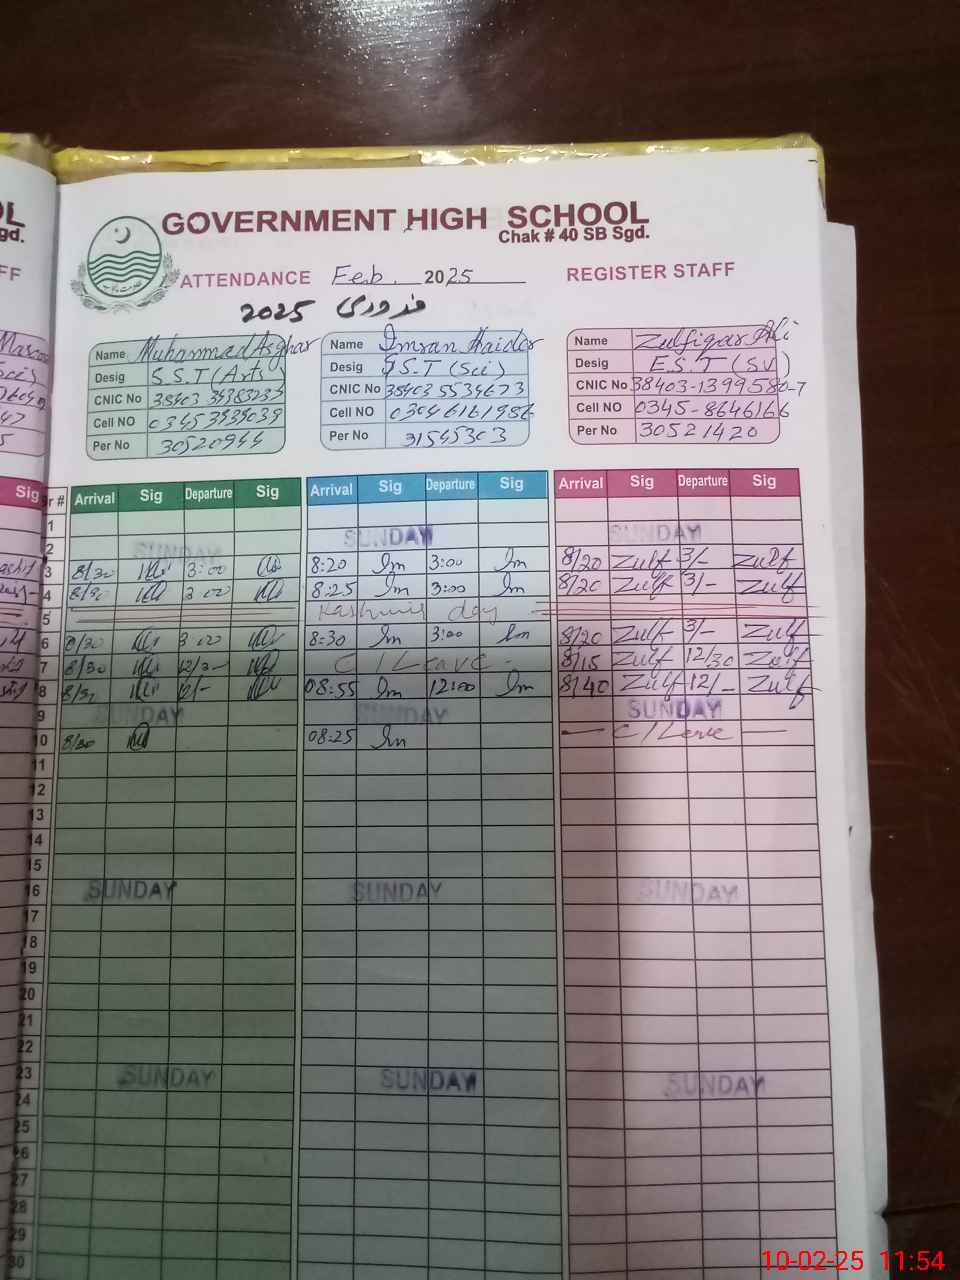 GOVERNMENT HIGH SCHOOL
Chak # 40 SB Sgd.
ATTENDANCE Feb. 2025 REGISTER STAFF
فروری 2025
Name Muhammad Asghar
Desig S.S.T (Arts)
CNIC No
Cell NO
Per No 30520944
Name Imran Haider
Desig S.S.T (Sci)
CNIC No 38403 5534673
Cell NO 03046161986
Per No 31545303
Name Zulfiqar Ali
Desig E.S.T (S.V)
CNIC No 38403-1399580-7
Cell NO 0345-8646166
Per No 30521420
Sr # Arrival Sig Departure Sig Arrival Sig Departure Sig Arrival Sig Departure Sig
1
2 SUNDAY SUNDAY SUNDAY
3 8/30 3:00 8:20 Im 3:00 Im 8/20 Zulf 3/- Zulf
4 8/30 3:00 8:25 Im 3:00 Im 8/20 Zulf 3/- Zulf
5 Kashmir day
6 8/30 3:00 8:30 Im 3:00 Im 8/20 Zulf 3/- Zulf
7 8/30 12/30 C/Leave 8/15 Zulf 12/30 Zulf
8 8/30 12/- 08:55 Im 12:00 Im 8/40 Zulf 12/- Zulf
9 SUNDAY SUNDAY SUNDAY
10 8/30 08:25 Im C/Leave
11
12
13
14
15
16 SUNDAY SUNDAY SUNDAY
17
18
19
20
21
22
23 SUNDAY SUNDAY SUNDAY
24
25
26
27
28
29
30
10-02-25 11:54